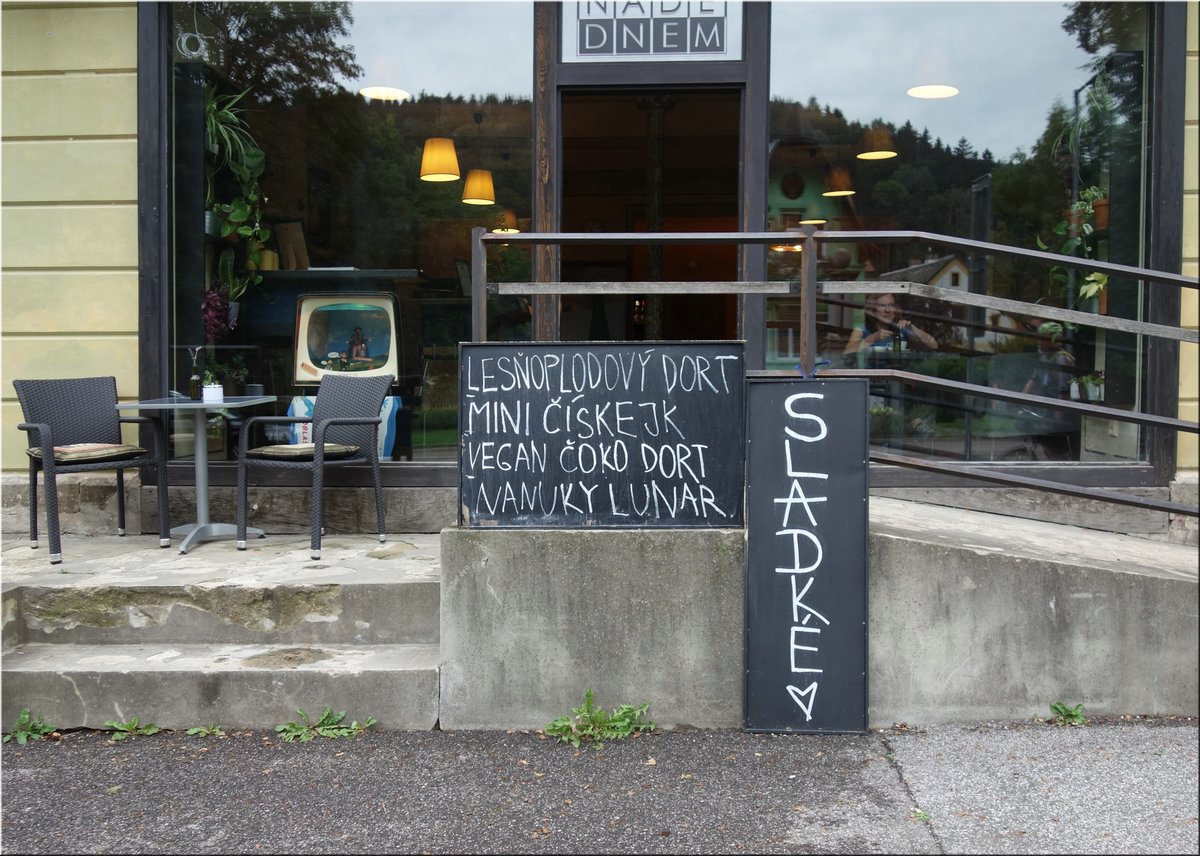 NADE
DNEM
LESŇOPLODOVÝ DORT
MINI ČÍSKEJK
VEGAN ČOKO DORT
NANUKY LUNAR.
SLADKÉ